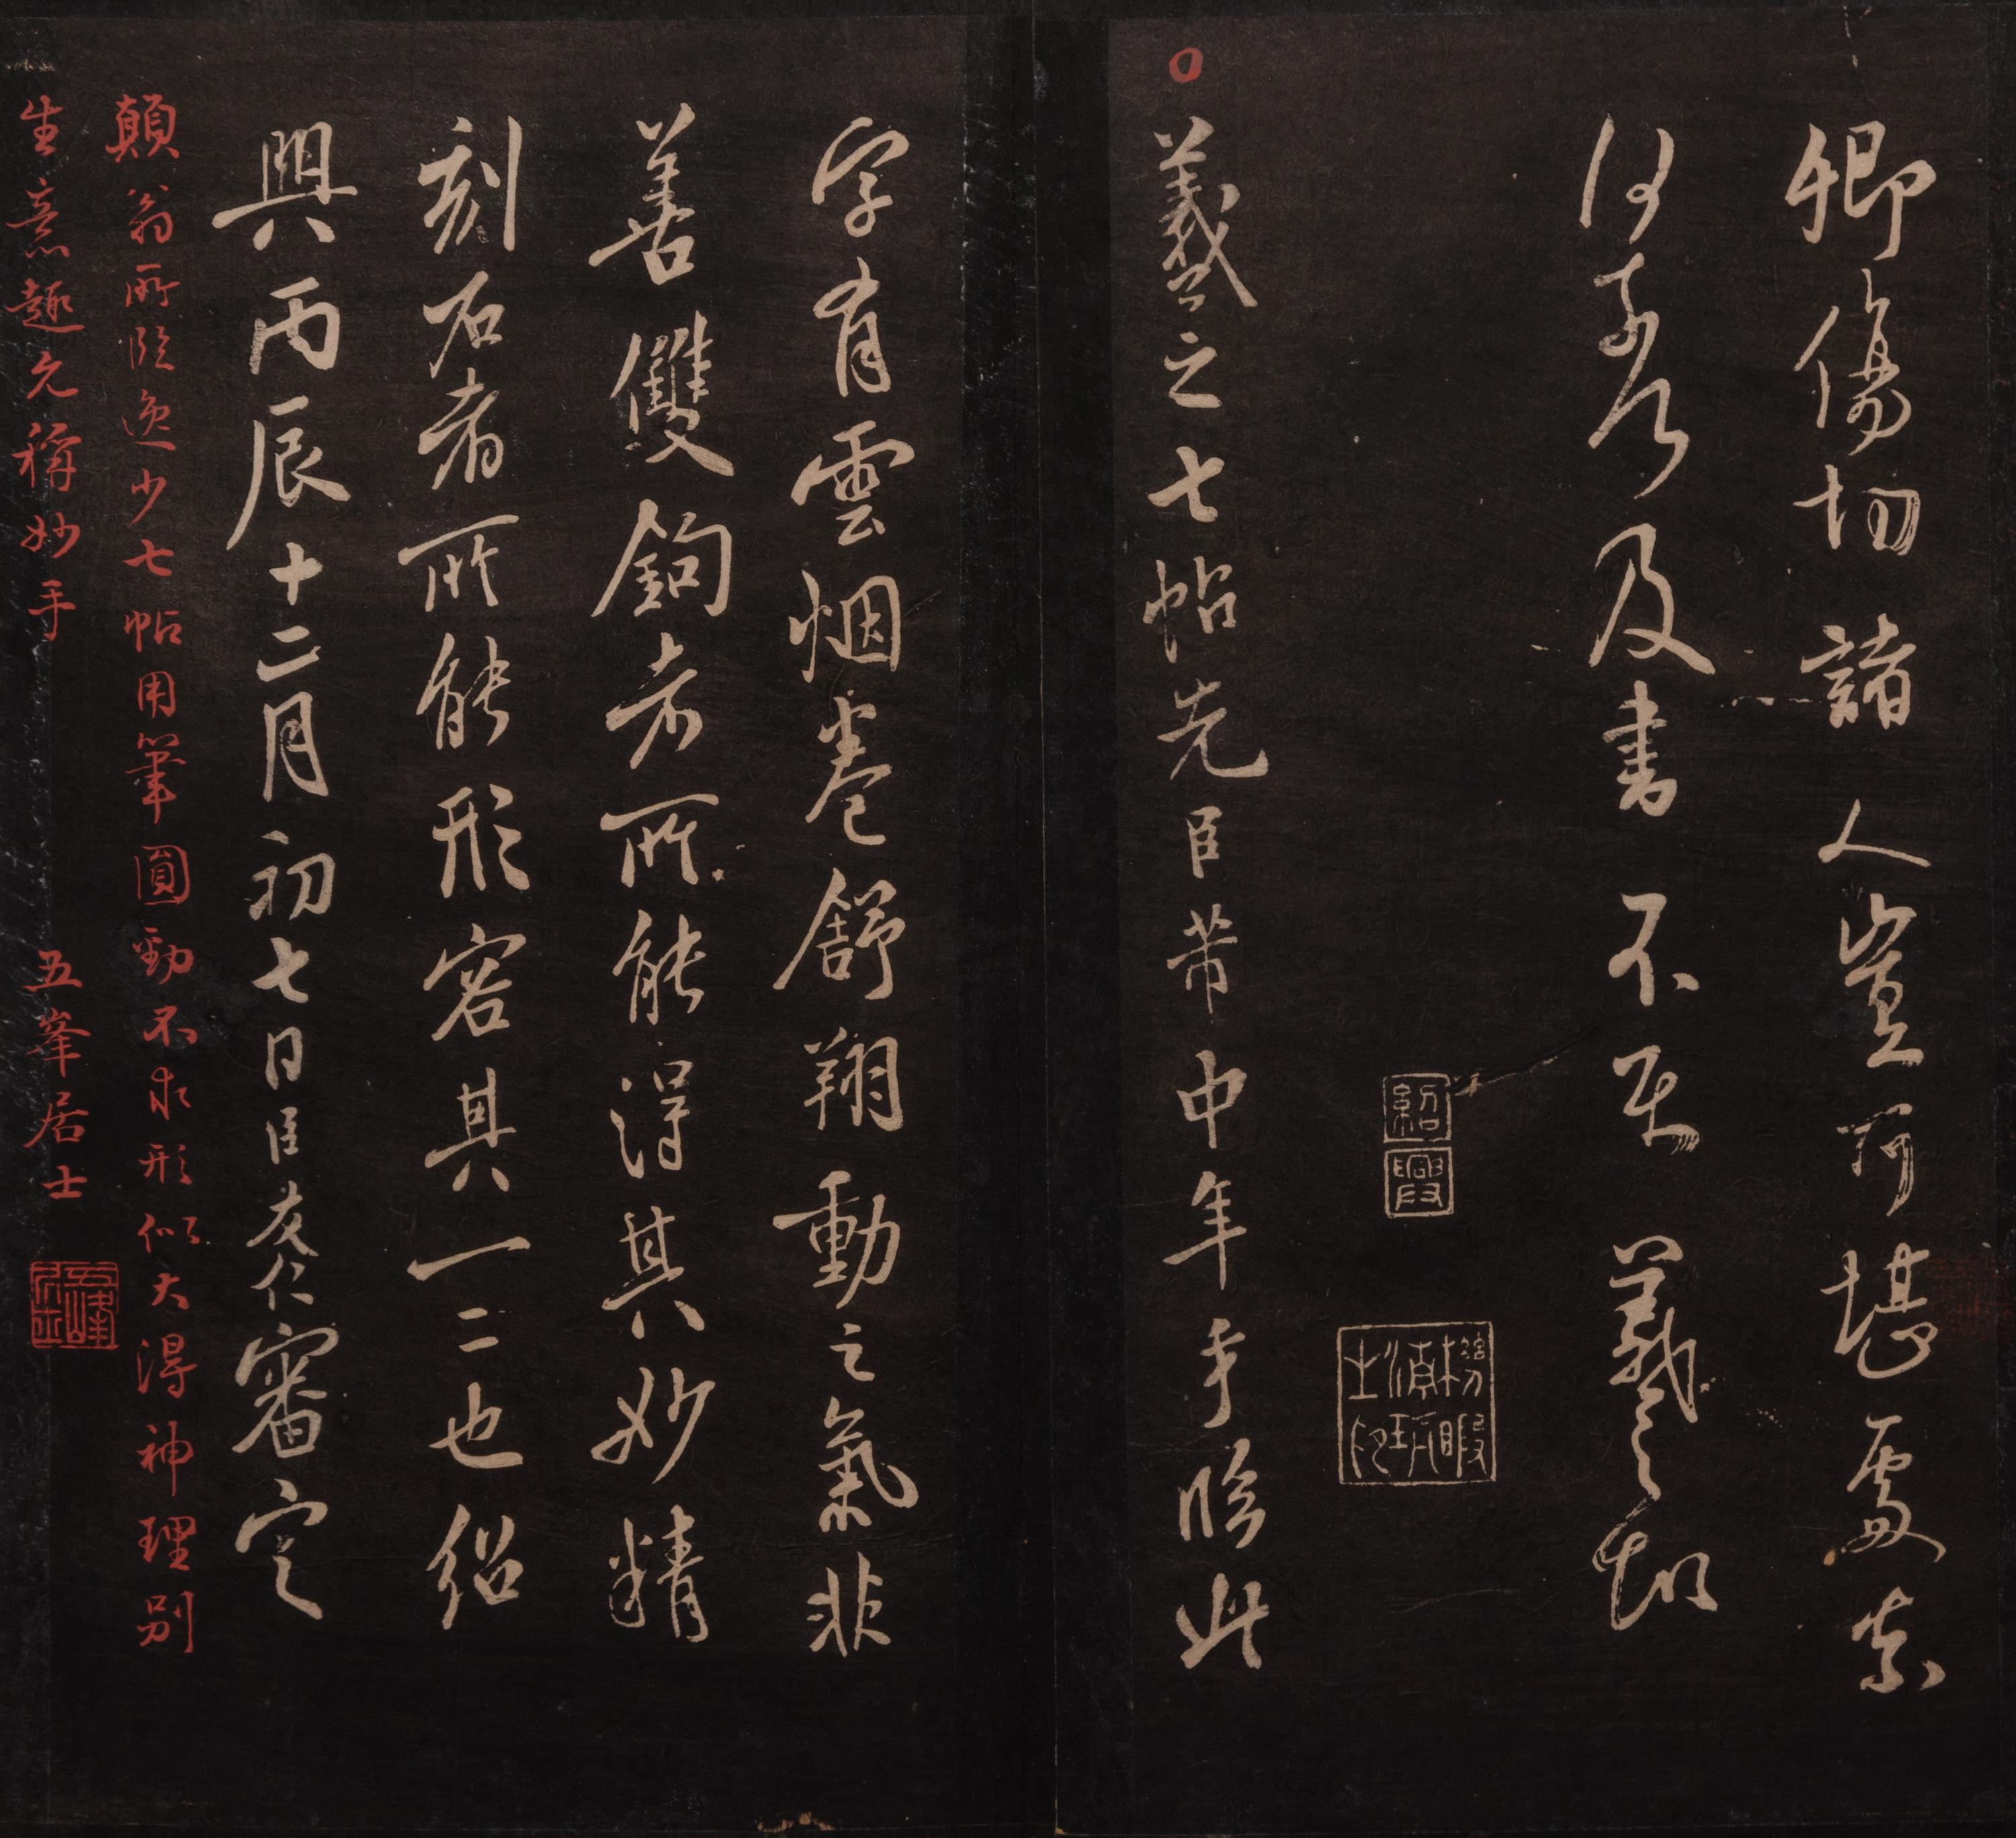 卿傷切諸人豈可堪處奈
何奈何及書不既羲之頓
紹興
羲之七帖先臣芾中年手臨此
字有雲烟卷舒翔動之氣非
善雙鉤者所能得其妙精
刻石者所能形容其一二也紹
興丙辰十二月初七日臣友仁審定
顛翁所臨逸少七帖用筆圓勁不求形似大得神理別
生意趣允稱妙手 五峯居士